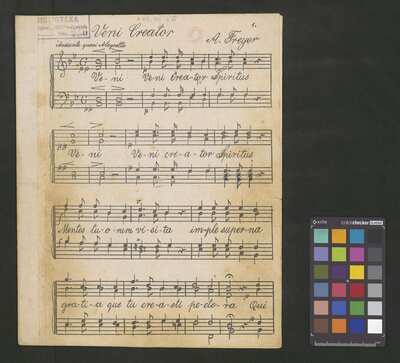 Veni Creator
A. Freyer
Andante quasi Allegretto
Ve - ni Ve-ni Crea-tor Spiritus
Ve - ni Ve-ni cre-a-tor Spiritus
Mentes tu-o-rum vi-si-ta im-ple super-na
gra-ti-a que tu cre-a-sti pe-cto-ra Qui
colorchecker CLASSIC